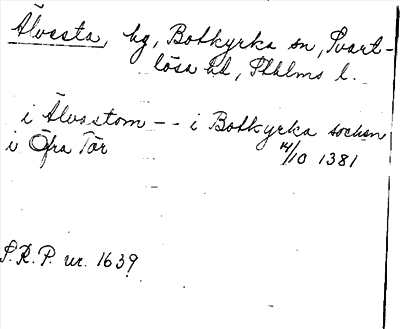 Älvesta, by, Botkyrka sn, Svart-
lösa hd, Sthlms l.
i Älvastom -- i Botkyrka socken
i Öfra Tör 14/10 1381
S.R.P. nr. 1639